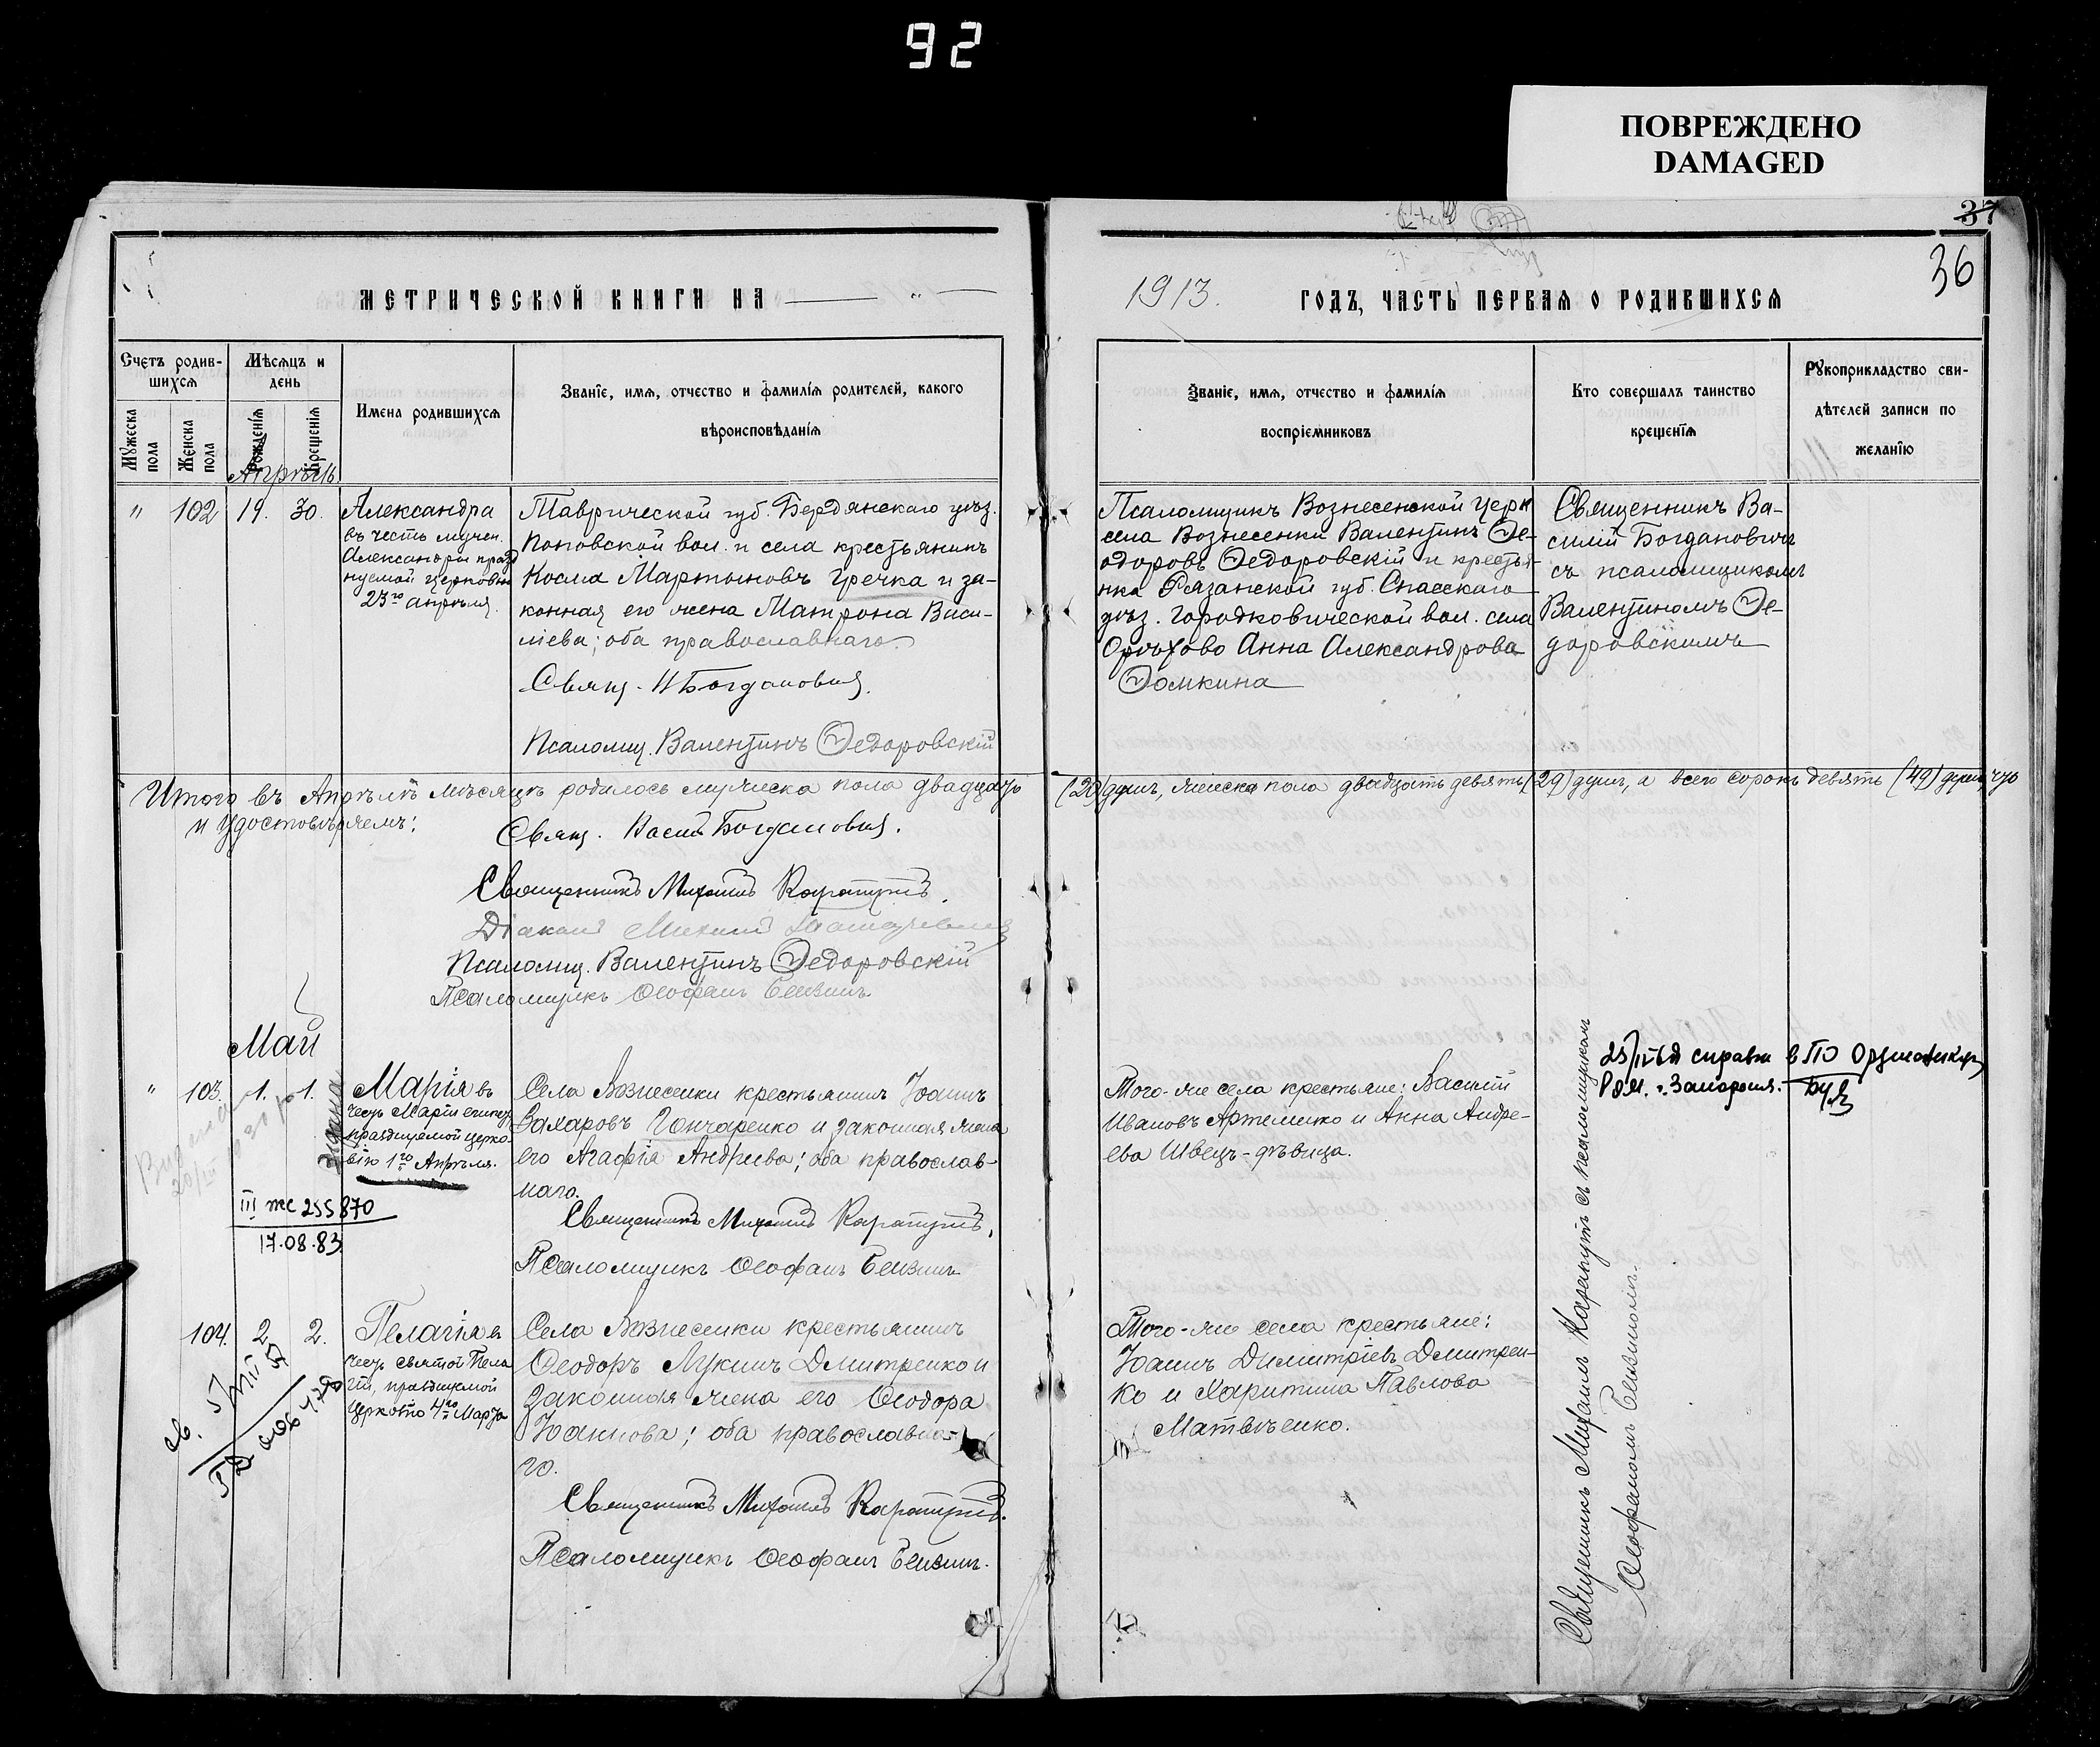 92
ПОВРЕЖДЕНО
DAMAGED
37
36
МЕТРИЧЕСКОЙ КНИГИ НА
1913.
ГОДЪ, ЧАСТЬ ПЕРВАЯ О РОДИВШИХСЯ
Счетъ родив-
шихся
Мѣсяцъ и
день
Мужеска
пола
Женска
пола
рожденія
крещенія
Имена родившихся
Званіе, имя, отчество и фамилія родителей, какого
вѣроисповѣданія
Званіе, имя, отчество и фамилія
воспріемниковъ
Кто совершалъ таинство
крещенія
Рукоприкладство сви-
дѣтелей записи по
желанію
Апрѣль
" 102 19. 30.
Александра
въ честь мучен.
Александры празд
нуемой церковію
23го апрѣля.
Таврической губ. Бердянскаго уѣз.
Поповской вол. и села крестьянинъ
Косма Мартыновъ Гречка и за-
конная его жена Матрона Васи-
ліева; оба православнаго.
Свящ. Н Богдановичъ.
Псаломщ. Валентинъ Ѳедоровскій
Псаломщикъ Вознесенской церк
села Вознесенки Валентинъ Ѳе-
одоровъ Ѳедоровскій и крестья-
нка Рязанской губ. Спасскаго
уѣз. Городковической вол. села
Орѣхово Анна Александрова
Ѳомкина
Священникъ Ва-
силій Богдановичъ
съ псаломщикомъ
Валентиномъ Ѳе-
доровскимъ
Итого въ Апрѣлѣ мѣсяцѣ родилось мужеска пола двадцать (20) душъ, женска пола двадцать девять (29) душъ, а всего сорокъ девять (49) душъ, что
и удостовѣряемъ:
Свящ. Васил Богдановичъ.
Священникъ Михаилъ Карапутъ.
Діаконъ Михаилъ
Псаломщ. Валентинъ Ѳедоровскій
Псаломщикъ Ѳеофанъ Бензинъ
Май
" 103. 1. 1.
Марія въ
честь Маріи египет
празднуемой церко-
вію 1го Апрѣля.
III жс 255870
17.08.83
Села Вознесенки крестьянинъ Іоаннъ
Захаровъ Гончаренко и законная жена
его Агафія Андреева; оба православ-
наго.
Священникъ Михаилъ Карапутъ.
Псаломщикъ Ѳеофанъ Бензинъ
Того-же села крестьяне: Василій
Ивановъ Артеменко и Анна Андре-
ева Швецъ-дѣвица.
справка в ПО
Запорожья.
104. 2 2.
Пелагія въ
честь святой Пела
гіи, празднуемой
церковію 4го Марта
Села Вознесенки крестьянинъ
Ѳеодоръ Лукинъ Дмитренко и
законная жена его Ѳеодора
Іоаннова; оба православна-
го.
Священникъ Михаилъ Карапутъ.
Псаломщикъ Ѳеофанъ Бензинъ.
Того-же села крестьяне:
Іоаннъ Димитріевъ Дмитрен-
ко и Харитина Павлова
Матвѣенко.
Священникъ Михаилъ Карапутъ съ псаломщикомъ
Ѳеофаномъ Бензиномъ.